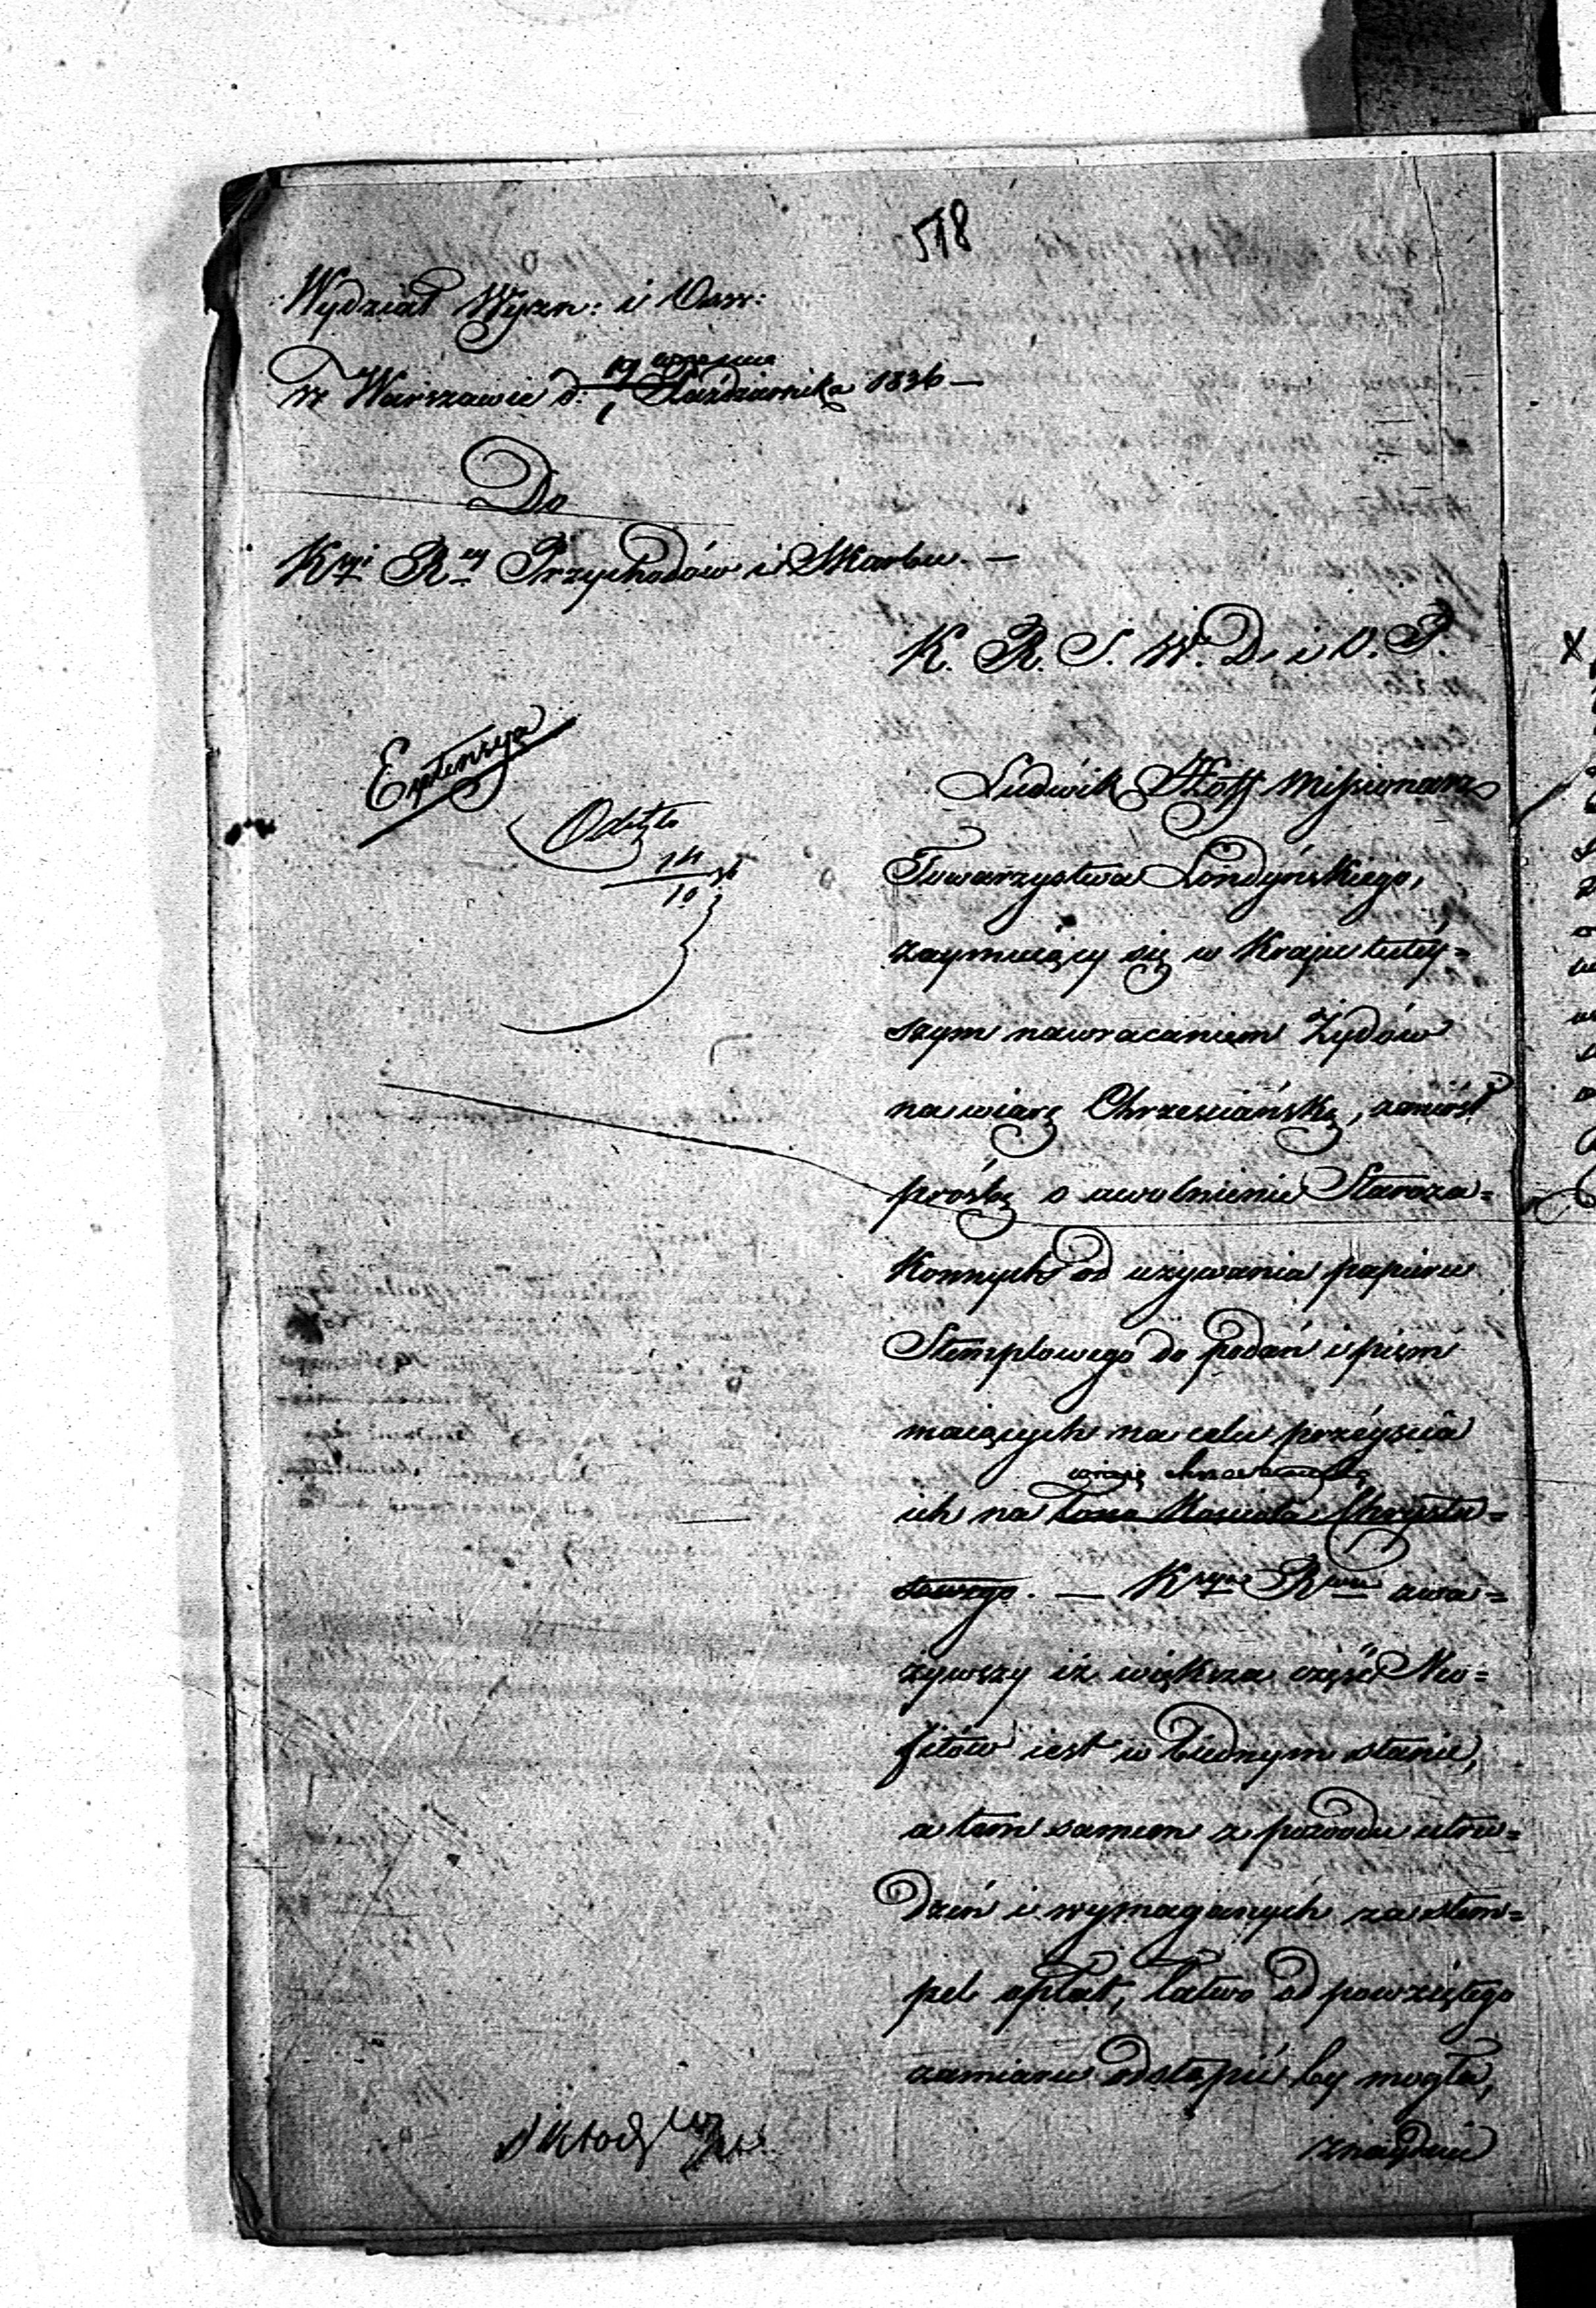 518
Wydział Wyzn: i Ośw:
w Warszawie d: 19 września
1 Października 1836 —
Do
Kyi Rey Przychodów i Skarbu. —
K. R. S. W. D. i O. P.
Expensya
Odeszło
14/10 36
Ludwik Hoff Missionarz
Towarzystwa Londyńskiego,
zaymuiący się w Kraju tutéy=
szym nawracaniem Żydów
na wiarę Chrzesciańską, zaniósł
prośbę o uwolnienie Staroza=
konnych od używania papieru
Stemplowego do podań i pism
maiących na celu przéyscia
wiarę chrzesciańską
ich na łono Kościoła Chrystu=
sowego. — Kyia Rwa zwa=
żywszy iż większa część Neo=
fitów iest w biednym stanie,
a tem samem z powodu utru=
dzeń i wymaganych za stem=
pel opłat, łatwo od powziętego
zamiaru odstąpić by mogła,
znayduie